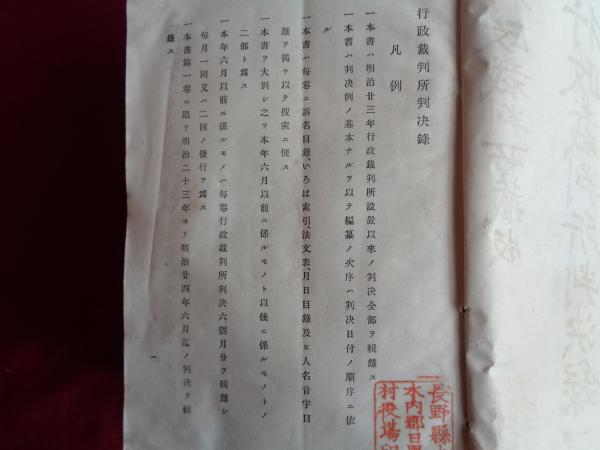 行政裁判所判決錄
凡例
一本書ハ明治廿三年行政裁判所設置以來ノ判決全部ヲ輯錄ス
一本書ハ判決例ノ基本ナルヲ以テ編纂ノ次序ハ判決日付ノ順序ニ依
ル
一本書ハ每卷ニ訴名目錄、いろは索引、法文表、月日目錄及ヒ人名音字目
錄ヲ揭ケ以テ搜索ニ便ス
一本書ヲ大別シ之ヲ本年六月以前ニ係ルモノト以後ニ係ルモノトノ
二部ト爲ス
一本年六月以前ニ係ルモノハ每卷行政裁判所判決六個月分ヲ輯錄シ
每月一回又ハ二回ノ發行ヲ爲ス
一本書第一卷ニ限リ明治二十三年ヨリ明治廿四年六月迄ノ判決ヲ輯
錄ス
一
長野縣
水内郡日
村役場印